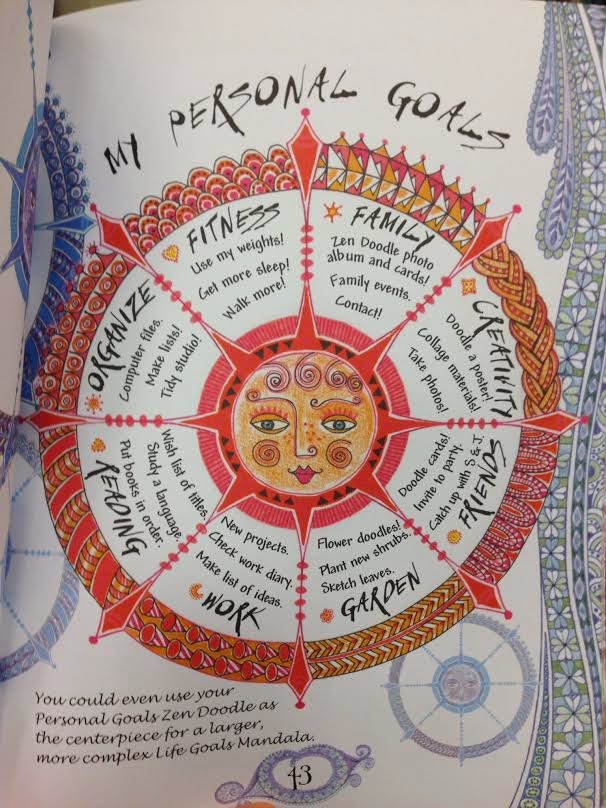 MY PERSONAL GOALS
FITNESS
Use my weights!
Get more sleep!
Walk more!
FAMILY
Zen Doodle photo
album and cards!
Family events.
Contact!
CREATIVITY
Doodle a poster!
Collage materials!
Take photos!
FRIENDS
Doodle cards!
Invite to party.
Catch up with S & J.
GARDEN
Flower doodles!
Plant new shrubs.
Sketch leaves.
WORK
New projects.
Check work diary.
Make list of ideas.
READING
Wish list of titles.
Study a language.
Put books in order.
ORGANIZE
Computer files.
Make lists!
Tidy studio!
You could even use your
Personal Goals Zen Doodle as
the centerpiece for a larger,
more complex Life Goals Mandala.
43